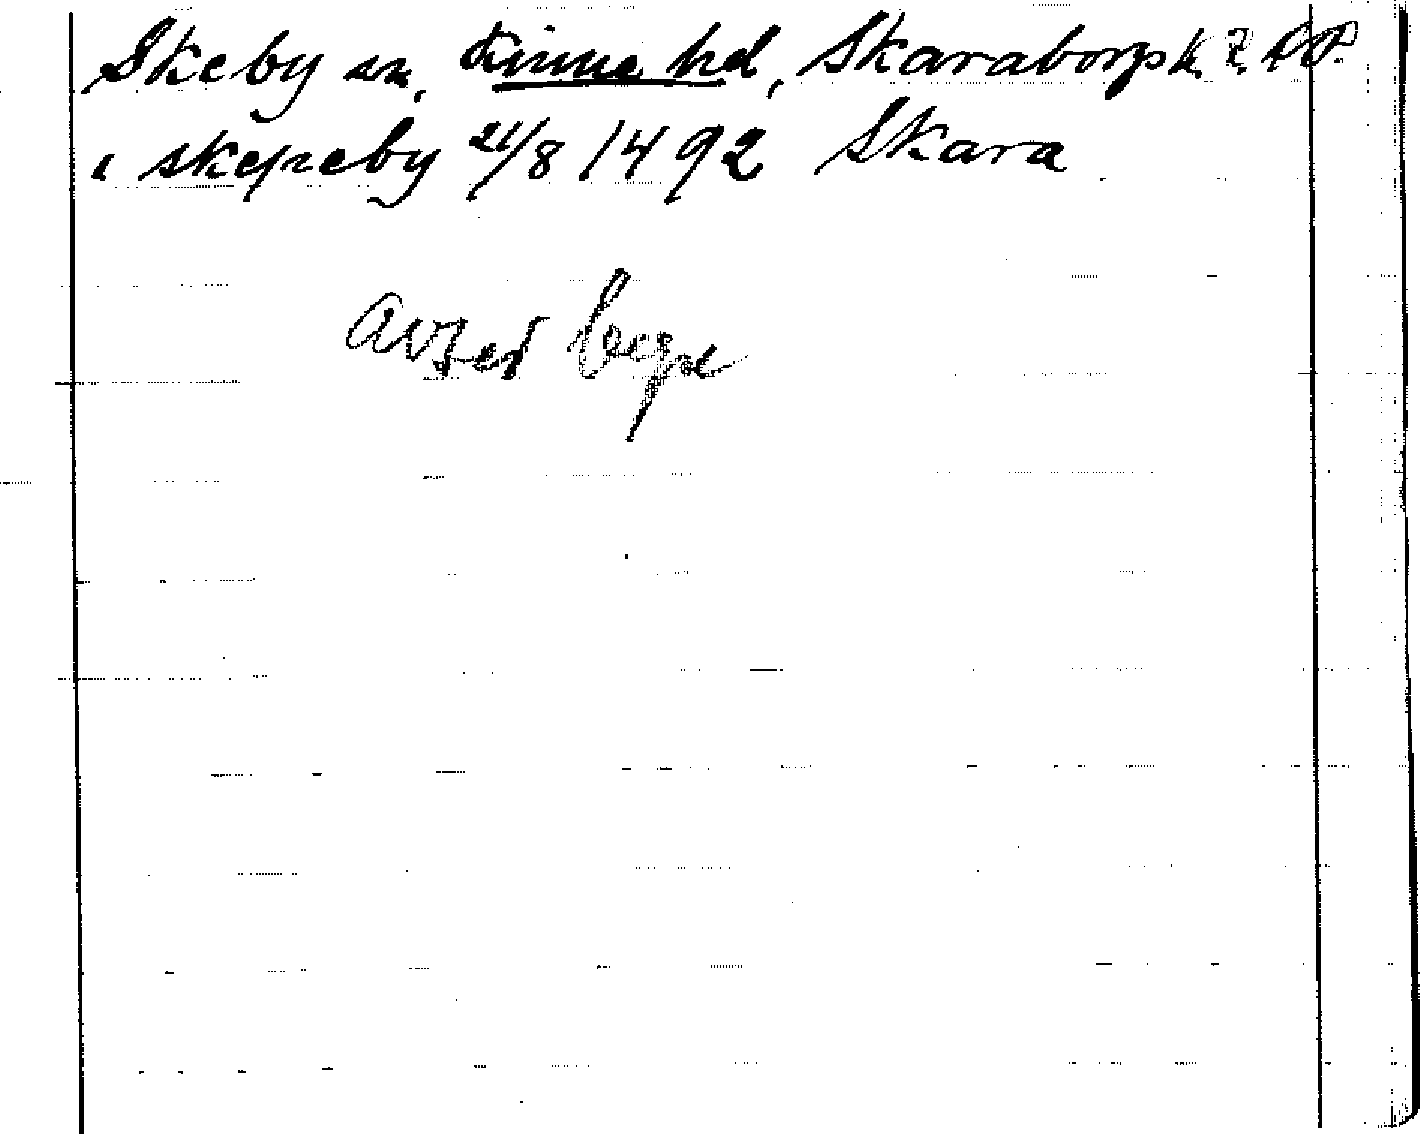 Skeby sn, Kinne hd, Skaraborgs l. RAP.
i skepreby 21/8 1492 Skara
avser Legd